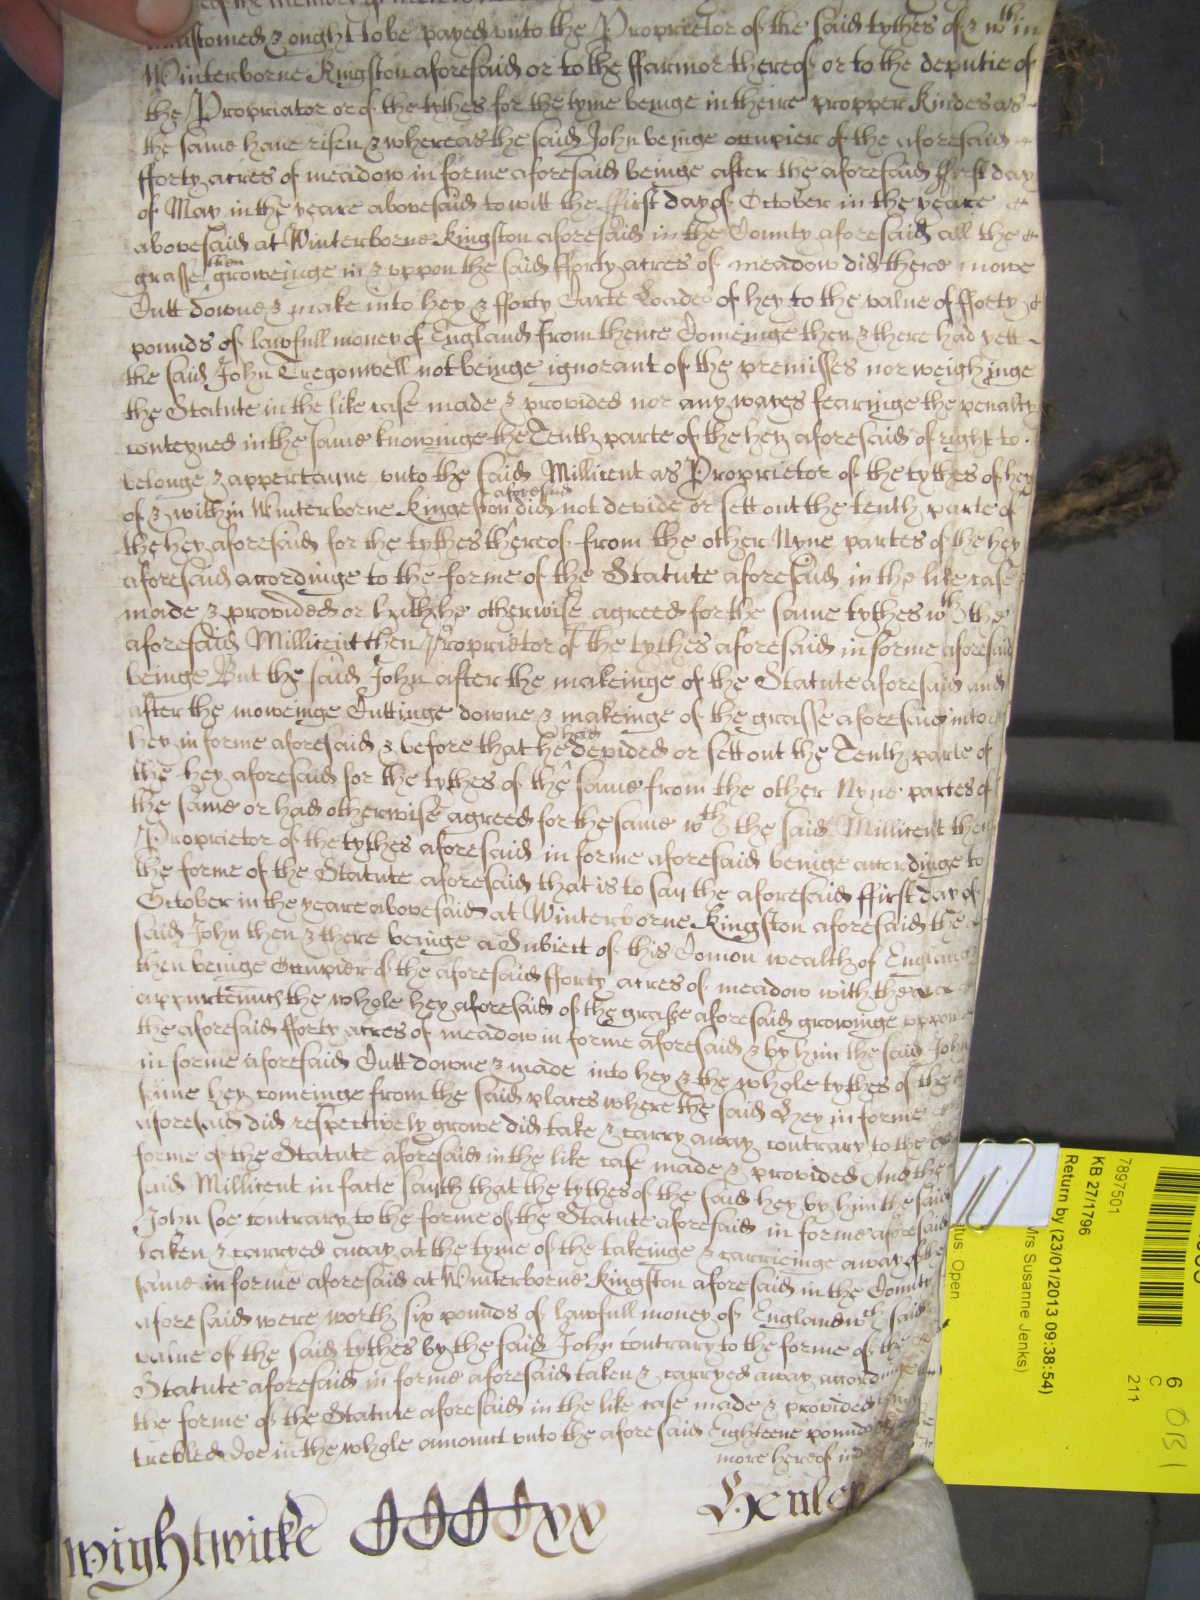 accustomed & ought to be payed unto the Proprietor of the said tythes of & wth in
Winterborne Kingston aforesaid or to the ffarmor thereof or to the deputie of
the Propriator or of the tythes for the tyme beinge in theire propper Kindes as
the same have risen & whereas the said John beinge occupier of the aforesaid
fforty acres of meadow in forme aforesaid beinge after the aforesaid ffirst day
of May in the yeare abovesaid to witt the ffirst day of October in the yeare
abovesaid at Winterborne Kingston aforesaid in the County aforesaid all the
grasse then groweinge in & uppon the said fforty acres of meadow did there mowe
Cutt downe & make into hey & fforty Carte Loades of hey to the value of fforty
pounds of lawfull money of England from thence Comeinge then & there had yett
the said John Tregonwell not beinge ignorant of the premisses nor weighinge
the Statute in the like case made & provided nor any wayes fearinge the penalty
conteyned in the same knowinge the Tenth parte of the hey aforesaid of right to
belonge & appertayne unto the said Millicent as Proprietor of the tythes of hey
of & within Winterborne Kingeston aforesaid did not devide or sett out the tenth parte of
the hey aforesaid for the tythes thereof from the other Nyne partes of the hey
aforesaid accordinge to the forme of the Statute aforesaid in the like case
made & provided or hath he otherwise agreed for the same tythes wth the
aforesaid Millicent then Proprietor of the tythes aforesaid in forme aforesaid
beinge But the said John after the makeinge of the Statute aforesaid and
after the moweinge Cuttinge downe & makeinge of the grasse aforesaid into
hey in forme aforesaid & before that he had devided or sett out the Tenth parte of
the hey aforesaid for the tythes of the same from the other Nyne partes of
the same or had otherwise agreed for the same wth the said Millicent then
Proprietor of the tythes aforesaid in forme aforesaid beinge accordinge to
the forme of the Statute aforesaid that is to say the aforesaid ffirst day of
October in the yeare abovesaid at Winterborne Kingston aforesaid the
said John then & there beinge a Subiect of this Comon wealth of England
then beinge Occupier of the aforesaid fforty acres of meadow with the
appurtennces the whole hey aforesaid of the grasse aforesaid growinge uppon
the aforesaid fforty acres of meadow in forme aforesaid & by him the said John
in forme aforesaid Cutt downe & made into hey & the whole tythes of the
same hey comeinge from the said places where the said Hey in forme
aforesaid did respectively growe did take & carry away contrary to the
forme of the Statute aforesaid in the like case made & provided And the
said Millicent in facte sayth that the tythes of the said hey by him the said
John soe contrary to the forme of the Statute aforesaid in forme aforesaid
taken & carryed away at the tyme of the takeinge & carrieinge away of the
same in forme aforesaid at Winterborne Kingston aforesaid in the County
aforesaid were worth six pounds of lawfull money of England wch said
value of the said tythes by the said John contrary to the forme of the
Statute aforesaid in forme aforesaid taken & carryed away accordinge
the forme of the Statute aforesaid in the like case made & provided
trebled doe in the whole amount unto the aforesaid Eighteene pounds
more hereof in
Wightwicke CCCCxx Henley
7897501
KB 27/1796
Return by (23/01/2013 09:38:54)
Mrs Susanne Jenks)
atus: Open
6
C
211